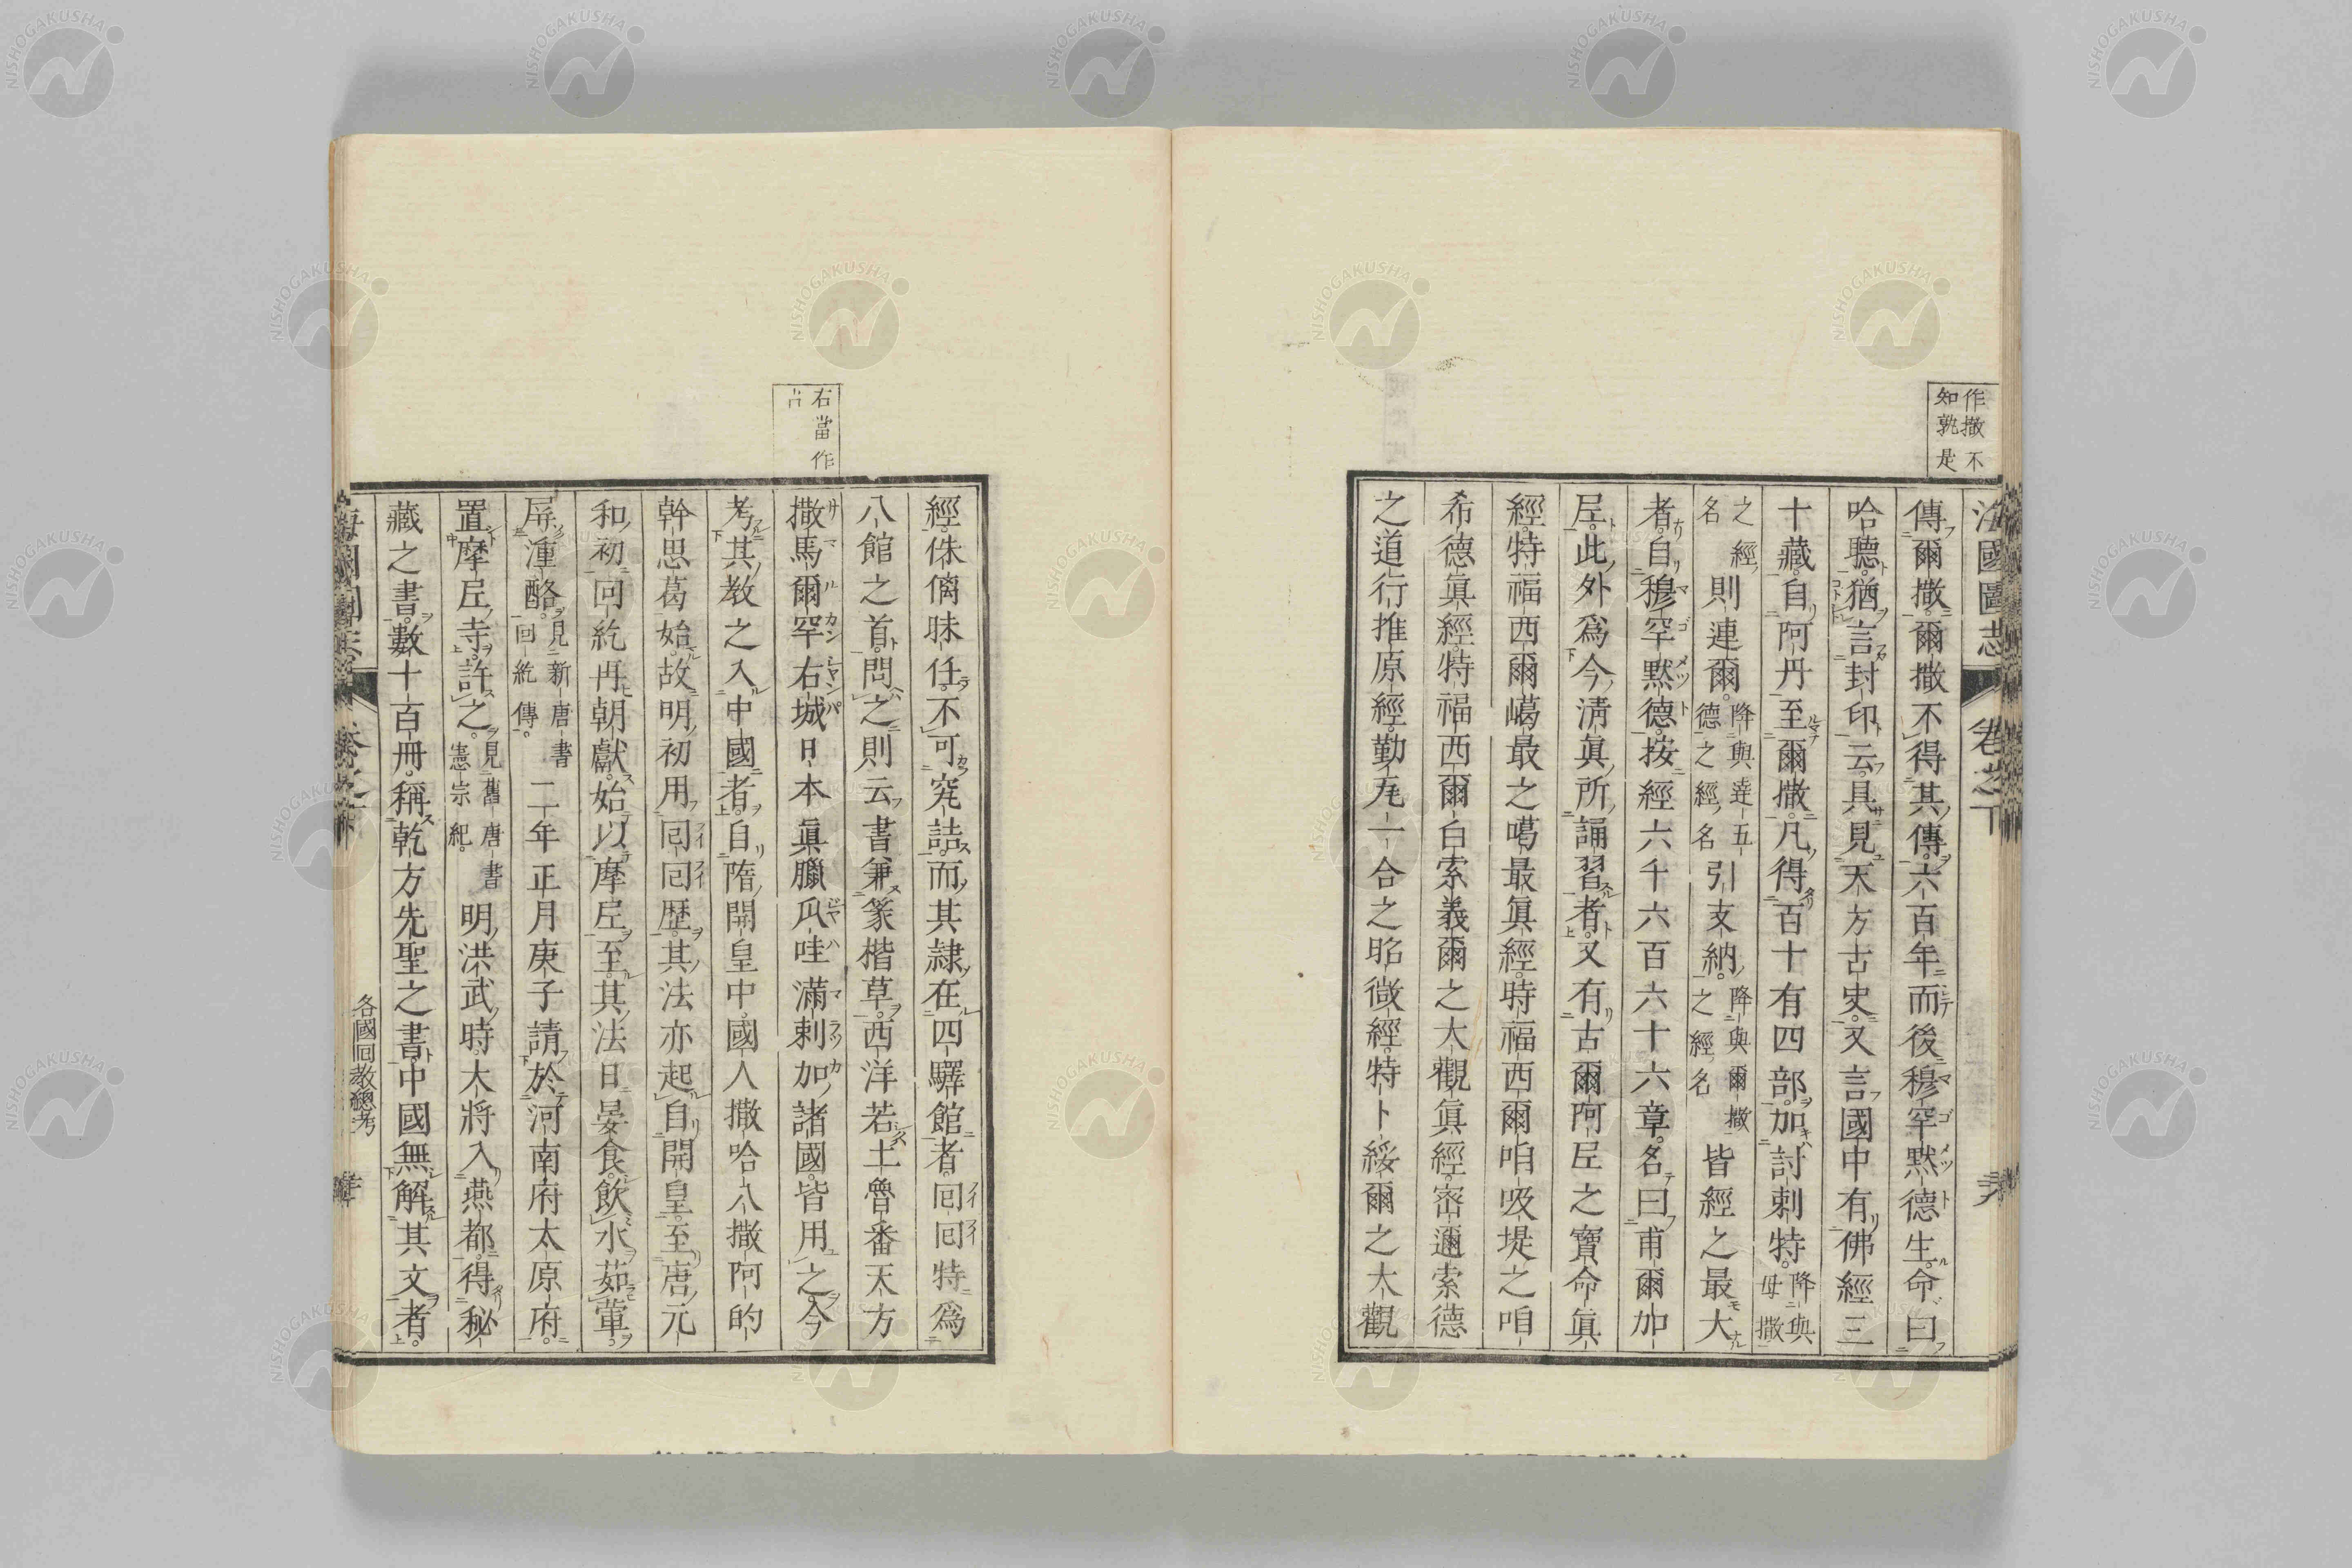 作撒不
知孰是
海國圖志 卷之下
傳爾撒爾撒不得其傳六百年而後穆罕默德生命曰
哈聽猶言封印云具見天方古史又言國中有佛經三
十藏自阿丹至爾撒凡得百十有四部加討剌特降與母撒
之經名則連爾降與達五德之經名引支納降與爾撒之經名皆經之最大
者自穆罕默德按經六千六百六十六章名曰甫爾加
尼此外爲今淸眞所誦習者又有古爾阿尼之寶命眞
經特福西爾噶最之噶最眞經時福西爾咱吸堤之咱
希德眞經特福西爾白索義爾之大觀眞經密邇索德
之道行推原經勤尢一合之昭微經特卜綏爾之大觀
右當作
占
經侏㒧昧任不可究詰而其隷在四驛館者囘囘特爲
八館之首問之則云書兼篆楷草西洋若土魯番天方
撒馬爾罕右城日本眞臘瓜哇滿剌加諸國皆用之今
考其教之入中國者自隋開皇中國人撒哈八撒阿的
幹思葛始故明初用囘囘歷其法亦起自開皇至唐元
和初囘紇再朝獻始以摩尼至其法日晏食飲水茹葷
屏湩酪見新唐書囘紇傳二年正月庚子請於河南府太原府
置摩尼寺許之見舊唐書憲宗紀明洪武時大將入燕都得秘
藏之書數十百冊稱乾方先聖之書中國無解其文者
各國囘教總考